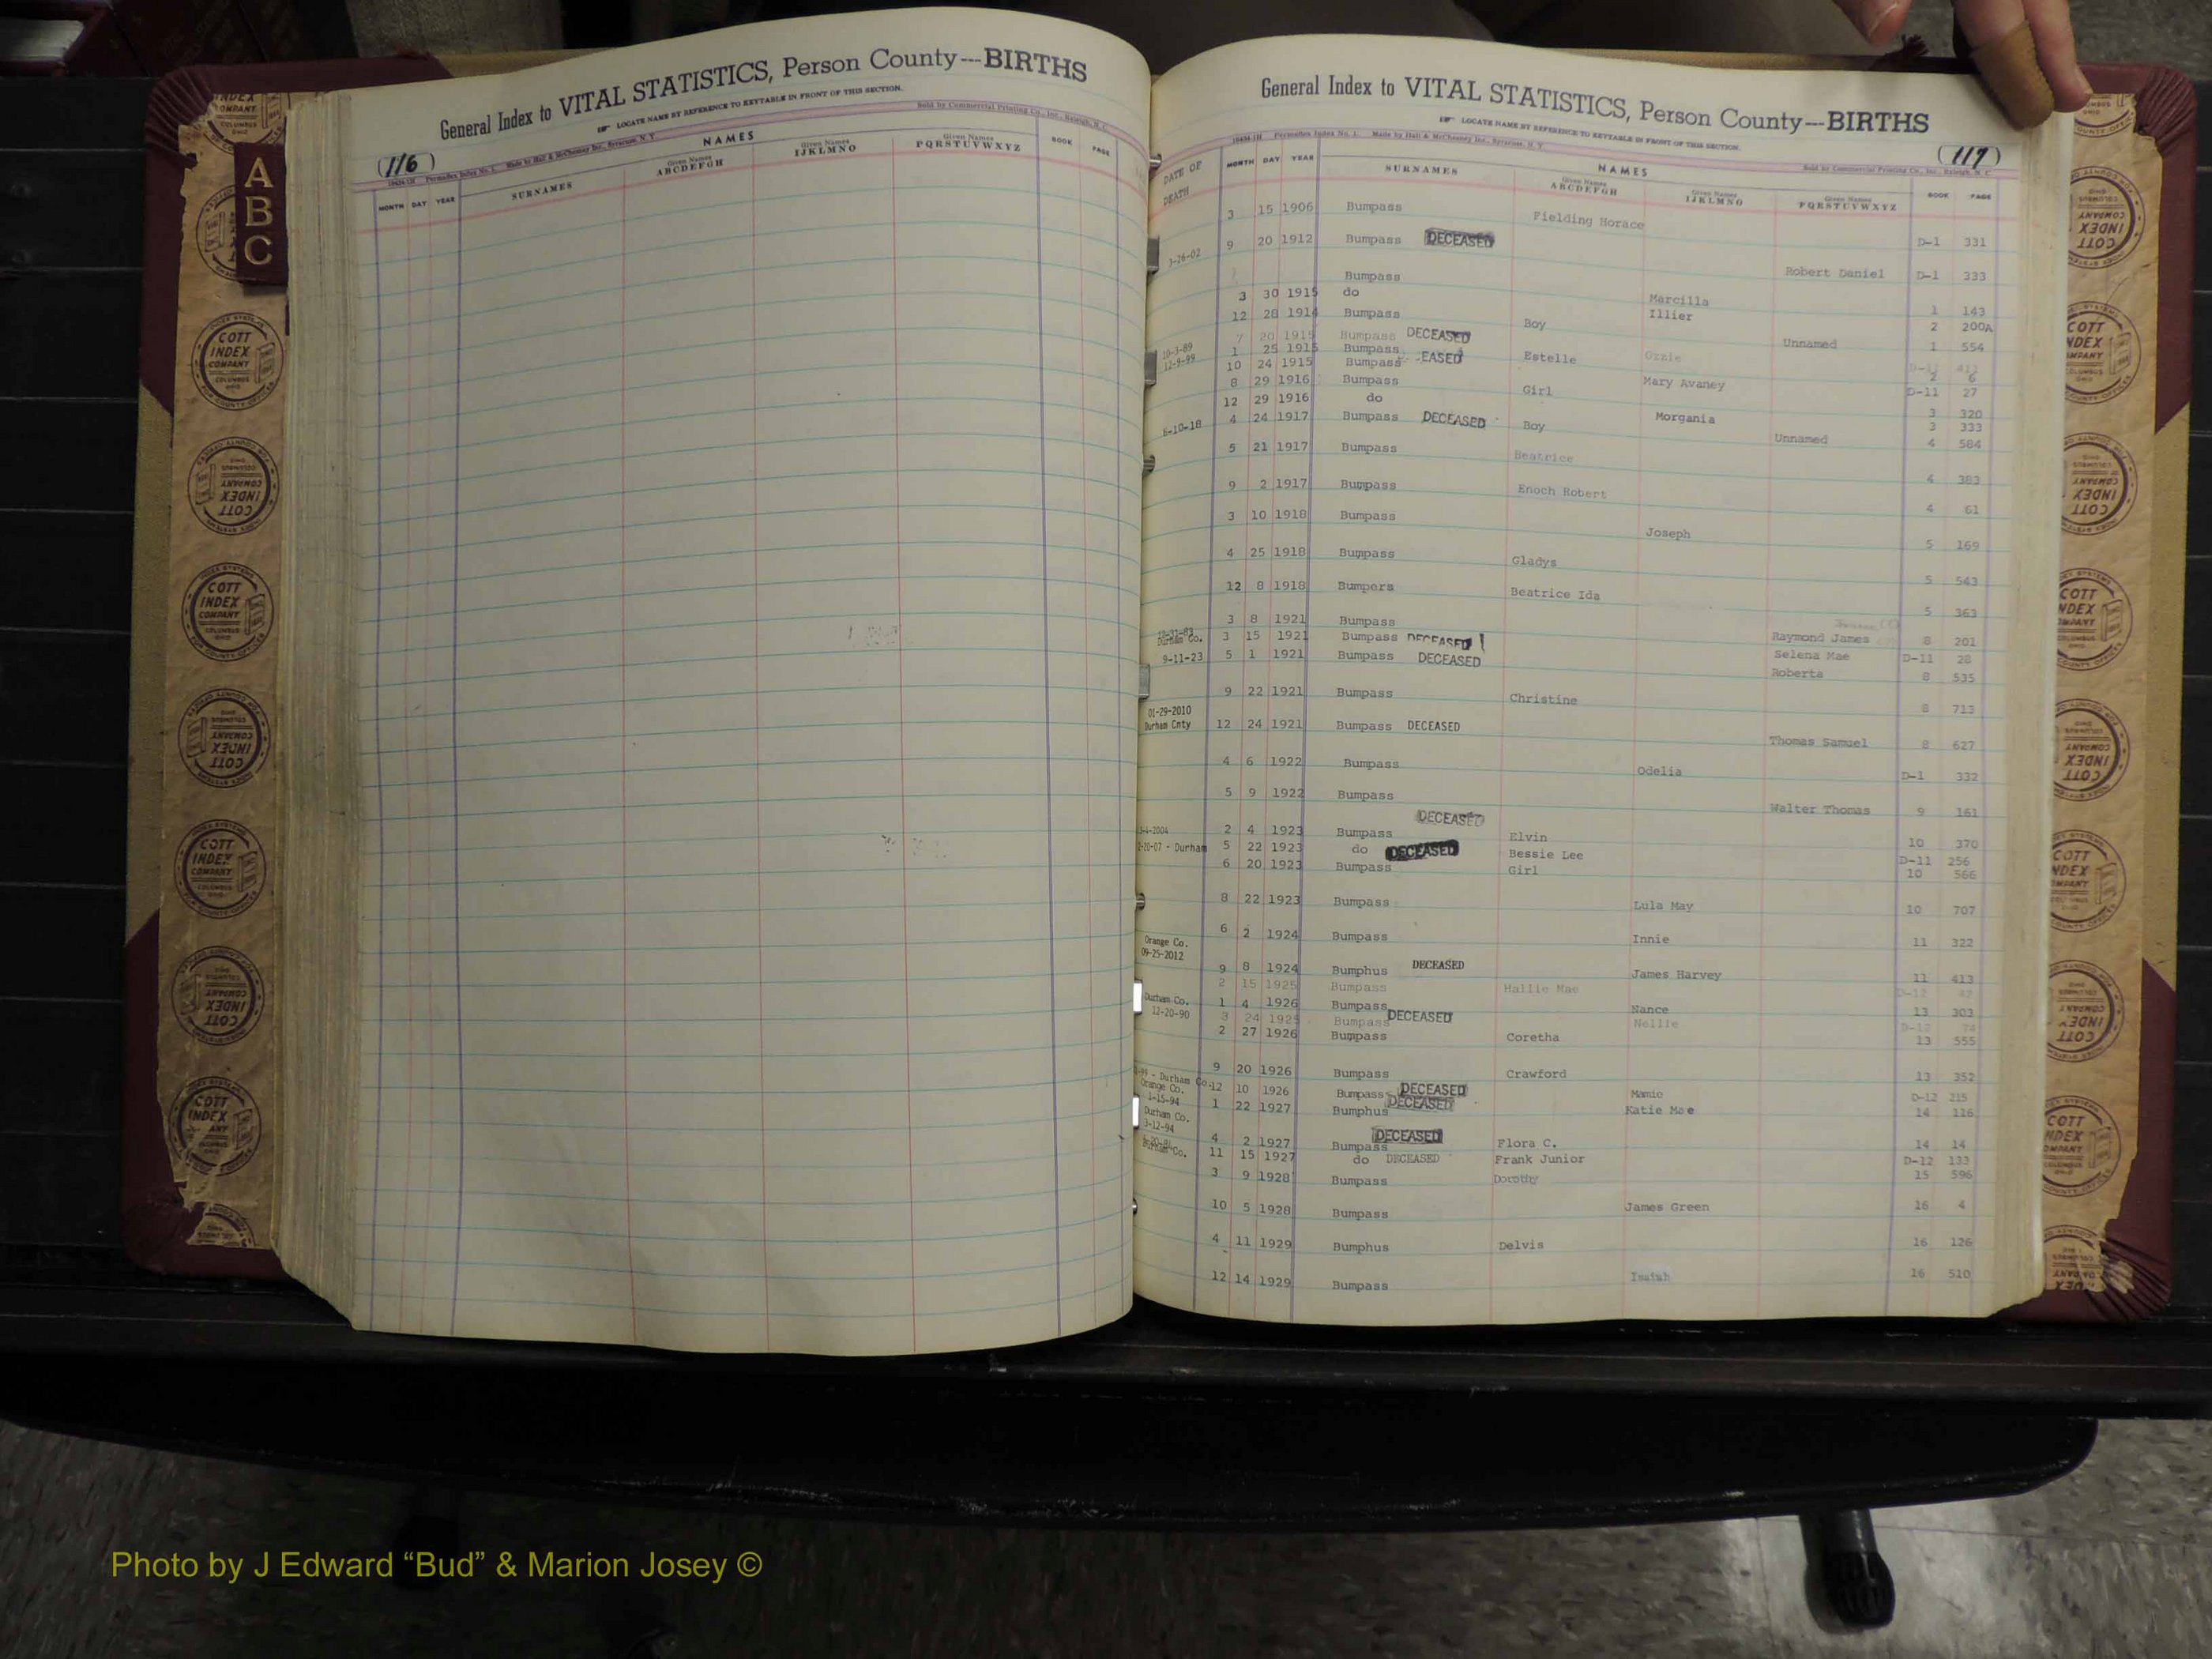 General Index to VITAL STATISTICS, Person County---BIRTHS
LOCATE NAME BY REFERENCE TO KEYTABLE IN FRONT OF THIS SECTION.
Sold by Commercial Printing Co., Inc., Raleigh, N. C.
(116)
Made by Hall & McChesney Inc., Syracuse, N. Y.
NAMES
MONTH DAY YEAR SURNAMES Given Names ABCDEFGH Given Names IJKLMNO Given Names PQRSTUVWXYZ BOOK PAGE
A
B
C
COTT INDEX COMPANY COLUMBUS OHIO
General Index to VITAL STATISTICS, Person County---BIRTHS
LOCATE NAME BY REFERENCE TO KEYTABLE IN FRONT OF THIS SECTION.
(117)
Made by Hall & McChesney Inc., Syracuse, N. Y.
Sold by Commercial Printing Co., Inc., Raleigh, N. C.
NAMES
DATE OF DEATH MONTH DAY YEAR SURNAMES Given Names ABCDEFGH Given Names IJKLMNO Given Names PQRSTUVWXYZ BOOK PAGE
3 15 1906 Bumpass Fielding Horace D-1 331
3-26-02 9 20 1912 Bumpass DECEASED Robert Daniel D-1 333
Bumpass Marcilla 1 143
3 30 1915 do Illier 2 200A
12 28 1914 Bumpass Boy Unnamed 1 554
10-3-89 7 20 1915 Bumpass DECEASED Ozzie
12-9-99 1 25 1915 Bumpass Estelle 2 6
10 24 1915 Bumpass EASED Mary Avaney D-11 27
8 29 1916 Bumpass Girl 3 320
12 29 1916 do Morgania 3 333
6-10-18 4 24 1917 Bumpass DECEASED Boy Unnamed 4 584
5 21 1917 Bumpass Beatrice 4 383
9 2 1917 Bumpass Enoch Robert 4 61
3 10 1918 Bumpass Joseph 5 169
4 25 1918 Bumpass Gladys 5 543
12 8 1918 Bumpers Beatrice Ida 5 363
3 8 1921 Bumpass Raymond James 8 201
Durham Co. 3 15 1921 Bumpass DECEASED Selena Mae D-11 28
9-11-23 5 1 1921 Bumpass DECEASED Roberta 8 535
9 22 1921 Bumpass Christine 8 713
01-29-2010
Durham Cnty 12 24 1921 Bumpass DECEASED Thomas Samuel 8 627
4 6 1922 Bumpass Odelia D-1 332
5 9 1922 Bumpass Walter Thomas 9 161
DECEASED
2 4 1923 Bumpass Elvin 10 370
Durham 5 22 1923 do DECEASED Bessie Lee D-11 256
6 20 1923 Bumpass Girl 10 566
8 22 1923 Bumpass Lula May 10 707
6 2 1924 Bumpass Innie 11 322
Orange Co.
09-25-2012
9 8 1924 Bumphus DECEASED James Harvey 11 413
2 15 1925 Bumpass Hallie Mae D-12
Durham Co. 1 4 1926 Bumpass Nance 13 303
12-20-90 3 24 1925 Bumpass DECEASED Nellie 74
2 27 1926 Bumpass Coretha 13 555
9 20 1926 Bumpass Crawford 13 352
Durham Co. 12 10 1926 Bumpass DECEASED Mamie D-12 215
Orange Co.
1-15-94 1 22 1927 Bumphus DECEASED Katie Mae 14 116
Durham Co.
3-12-94 4 2 1927 Bumpass DECEASED Flora C. 14 14
Durham Co. 11 15 1927 do DECEASED Frank Junior D-12 133
3 9 1928 Bumpass Dorothy 15 596
10 5 1928 Bumpass James Green 16 4
4 11 1929 Bumphus Delvis 16 126
12 14 1929 Bumpass Isaiah 16 510
Photo by J Edward “Bud” & Marion Josey ©